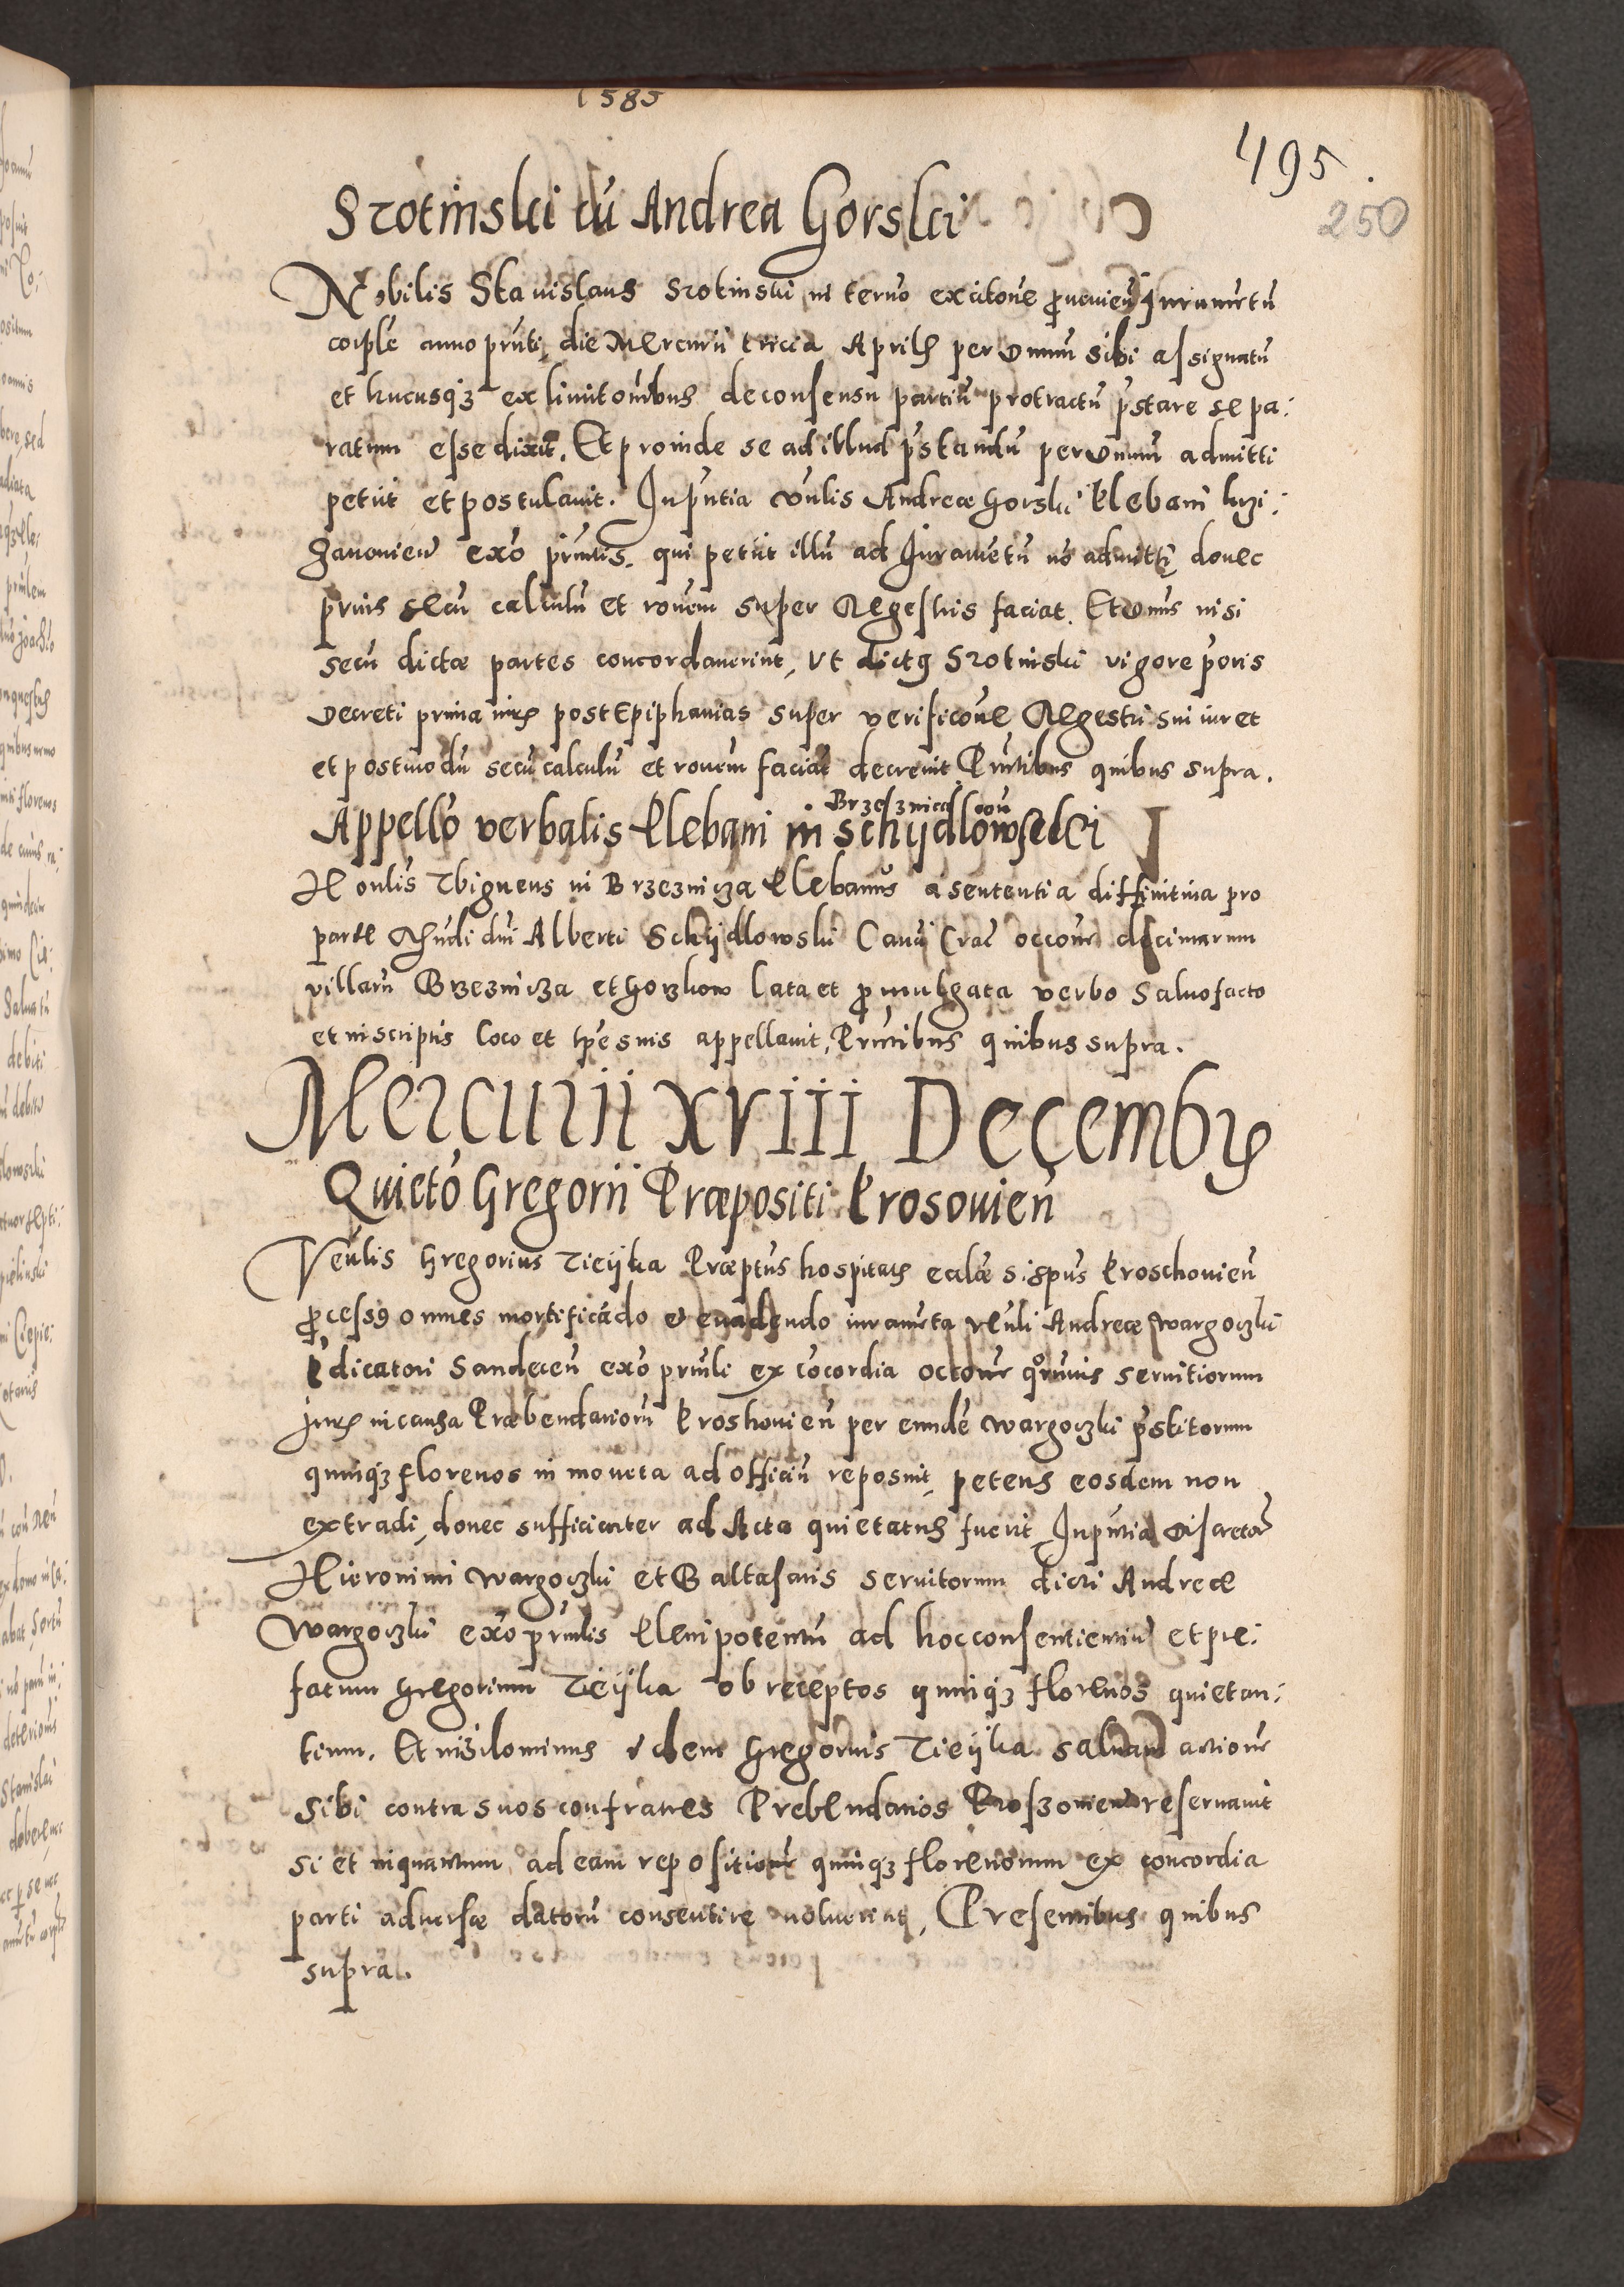 1585
495.
250
Srotinski cū Andrea Gorski
Nobilis Stanislaus Srotinski in termo ex citōne ꝓuenieñ Juramētū
corple anno prnti die Mercurii tercia Aprilis per Dnum sibi assignatū
et hucusqꝫ ex limitōnibus de consensu partiū protractū pstare se pa:
ratum esse dixit. Et proinde se ad illud pstandū per Dnum admitti
petiit et postulauit. In pntia Vnlis Andreæ Gorski Plebani krzi:
zanouien exo prinlis. qui petiit illū ad Juramētū nō admitti donec
prius secū calculū et ronem super Regestris faciat. Et Dnus nisi
secū dictæ partes concordauerint, Vt dictꝰ Srotinski vigore prioris
Decreti prima iuris post Epiphanias super verificōne Regestri sui iuret
et postmodū secū calculū et ronem faciat decreuit Prntibus quibus supra.
Appellō verbalis Plebani in Brzeznica con Schijdlowski
Honlis Sbigneus in Brzeznicza Plebanus a sententia diffinitiua pro
parte Rndi dni Alberti Schijdlowski Canci Crac occōne decimarum
villarū Brzeznicza et Gorzkow lata et ꝓmulgata verbo saluo facto
et in scriptis loco et tpe suis appellauit, Prntibus quibus supra.
Mercurii XVIII Decembris
Quietō Gregorii Præpositi Prosouien
Venlis Gregorius Ticijka Præptus hospitalis ecclæ S. Spūs Proschouien
ꝓcessꝰ omnes mortificādo et euadendo iuramēta Venli Andreæ Wargoczki
Pdicatori Sandecen exo prinli ex cōcordia occōne qruuis seruitiorum
Juris in causa Præbendariorū Proshouien per eundē Wargoczki pstitorum
quinqꝫ florenos in moneta ad officiū reposuit, petens eosdem non
extradi, donec sufficienter ad Acta quietatus fuerit, In pntia discretorum
Hieronimi Wargoczki et Baltasaris seruitorum dicti Andreæ
Wargoczki exo prinlis Plenipotentū ad hoc consentientiū et pre:
fatum Gregorium Ticijka ob receptos quinqꝫ florenos quietan:
tium. Et nihilominus idem Gregorius Ticijka saluam actione
sibi contra suos confratres Prebendarios Proszouien reseruauit
si et inquantum ad eam repositione quinqꝫ florenorum ex concordia
parti aduersæ datorū consentire noluerint, Presentibus quibus
supra.